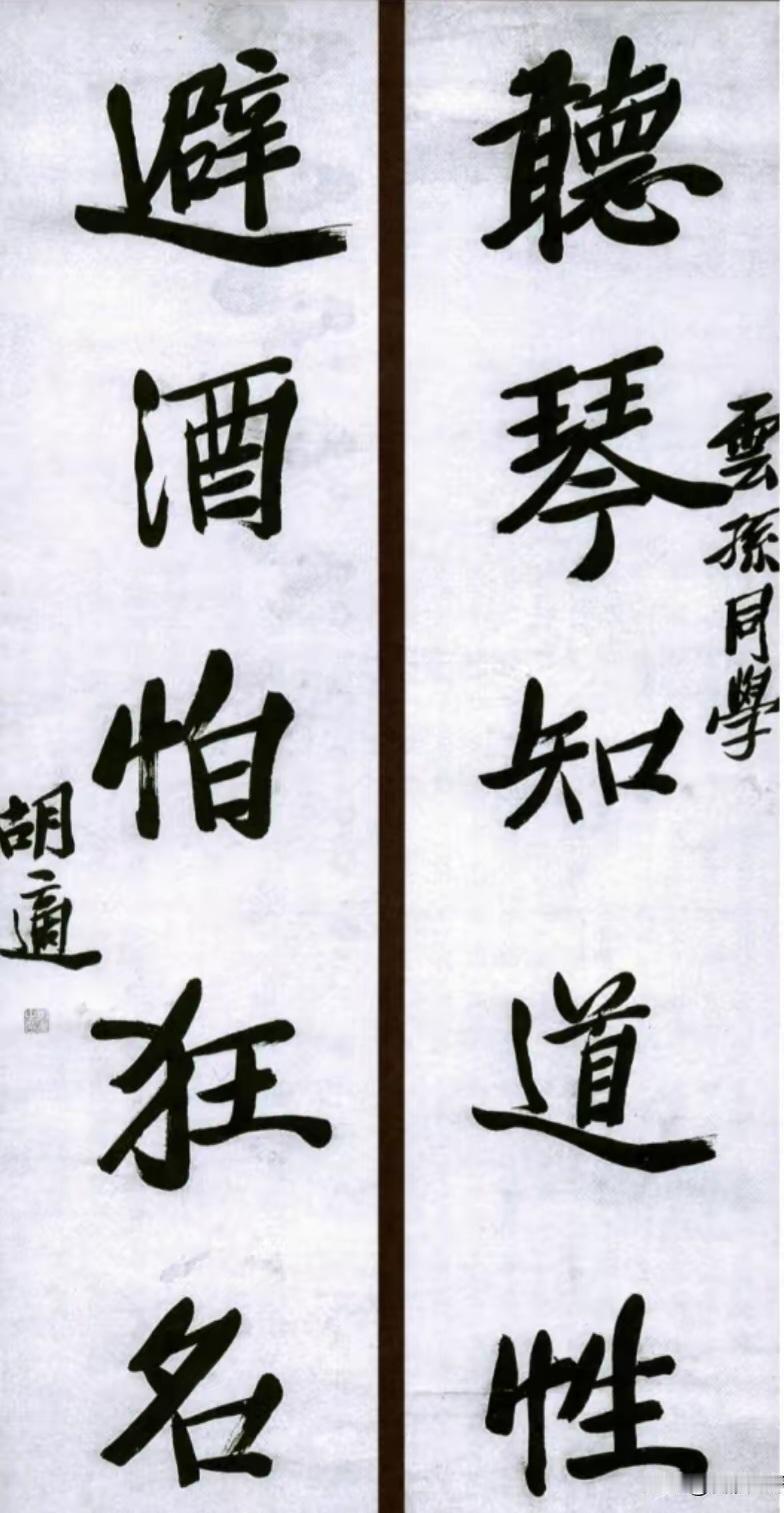 雲孫同學
聽琴知道性
避酒怕狂名
胡適